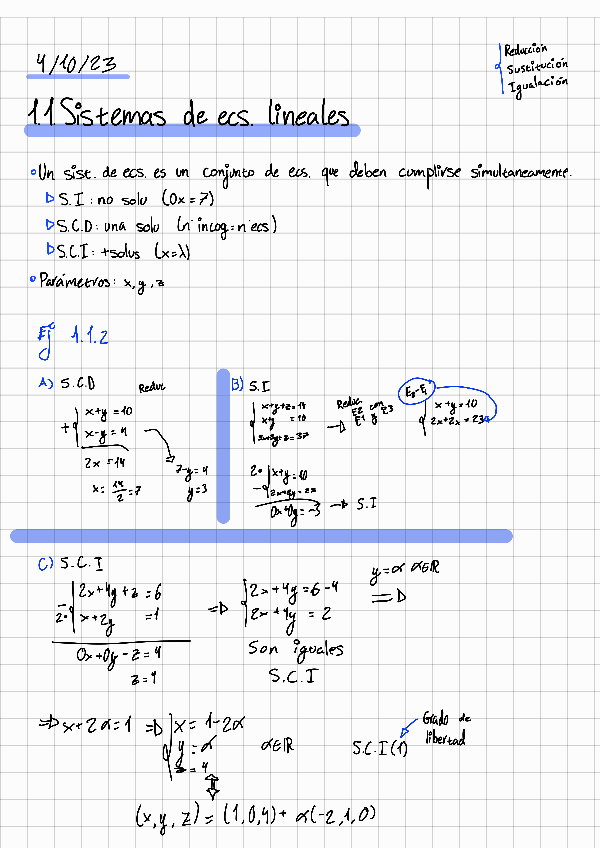 4/10/23
Reducción
Sustitución
Igualación
1.1 Sistemas de ecs. lineales
Un sist. de ecs. es un conjunto de ecs. que deben cumplirse simultaneamente.
S.I: no solu (0x=7)
S.C.D: una solu (nº incog=nº ecs)
S.C.I: +solus (x=λ)
Parámetros: x, y, z
Ej 1.1.2
A) S.C.D Reduc
x+y=10
+ x-y=4
2x=14
x=14/2=7
7-y=4
y=3
B) S.I
x+y+z=14
x+y =10
Reduc
E2 con E3
E1 y
E3-E1
x+y=10
2x+2x=23
2· x+y=10
0x+0y=-3 → S.I
C) S.C.I
2x+4y+z=6
- 2· x+2y =1
0x+0y-z=4
z=4
⇒ 2x+4y=6-4
2x+4y=2
Son iguales
S.C.I
y=α α∈ℝ
⇒
⇒ x+2α=1 ⇒ x=1-2α
y=α α∈ℝ
z=4
S.C.I(1)
Grado de
libertad
⇕
(x,y,z)=(1,0,4)+ α(-2,1,0)